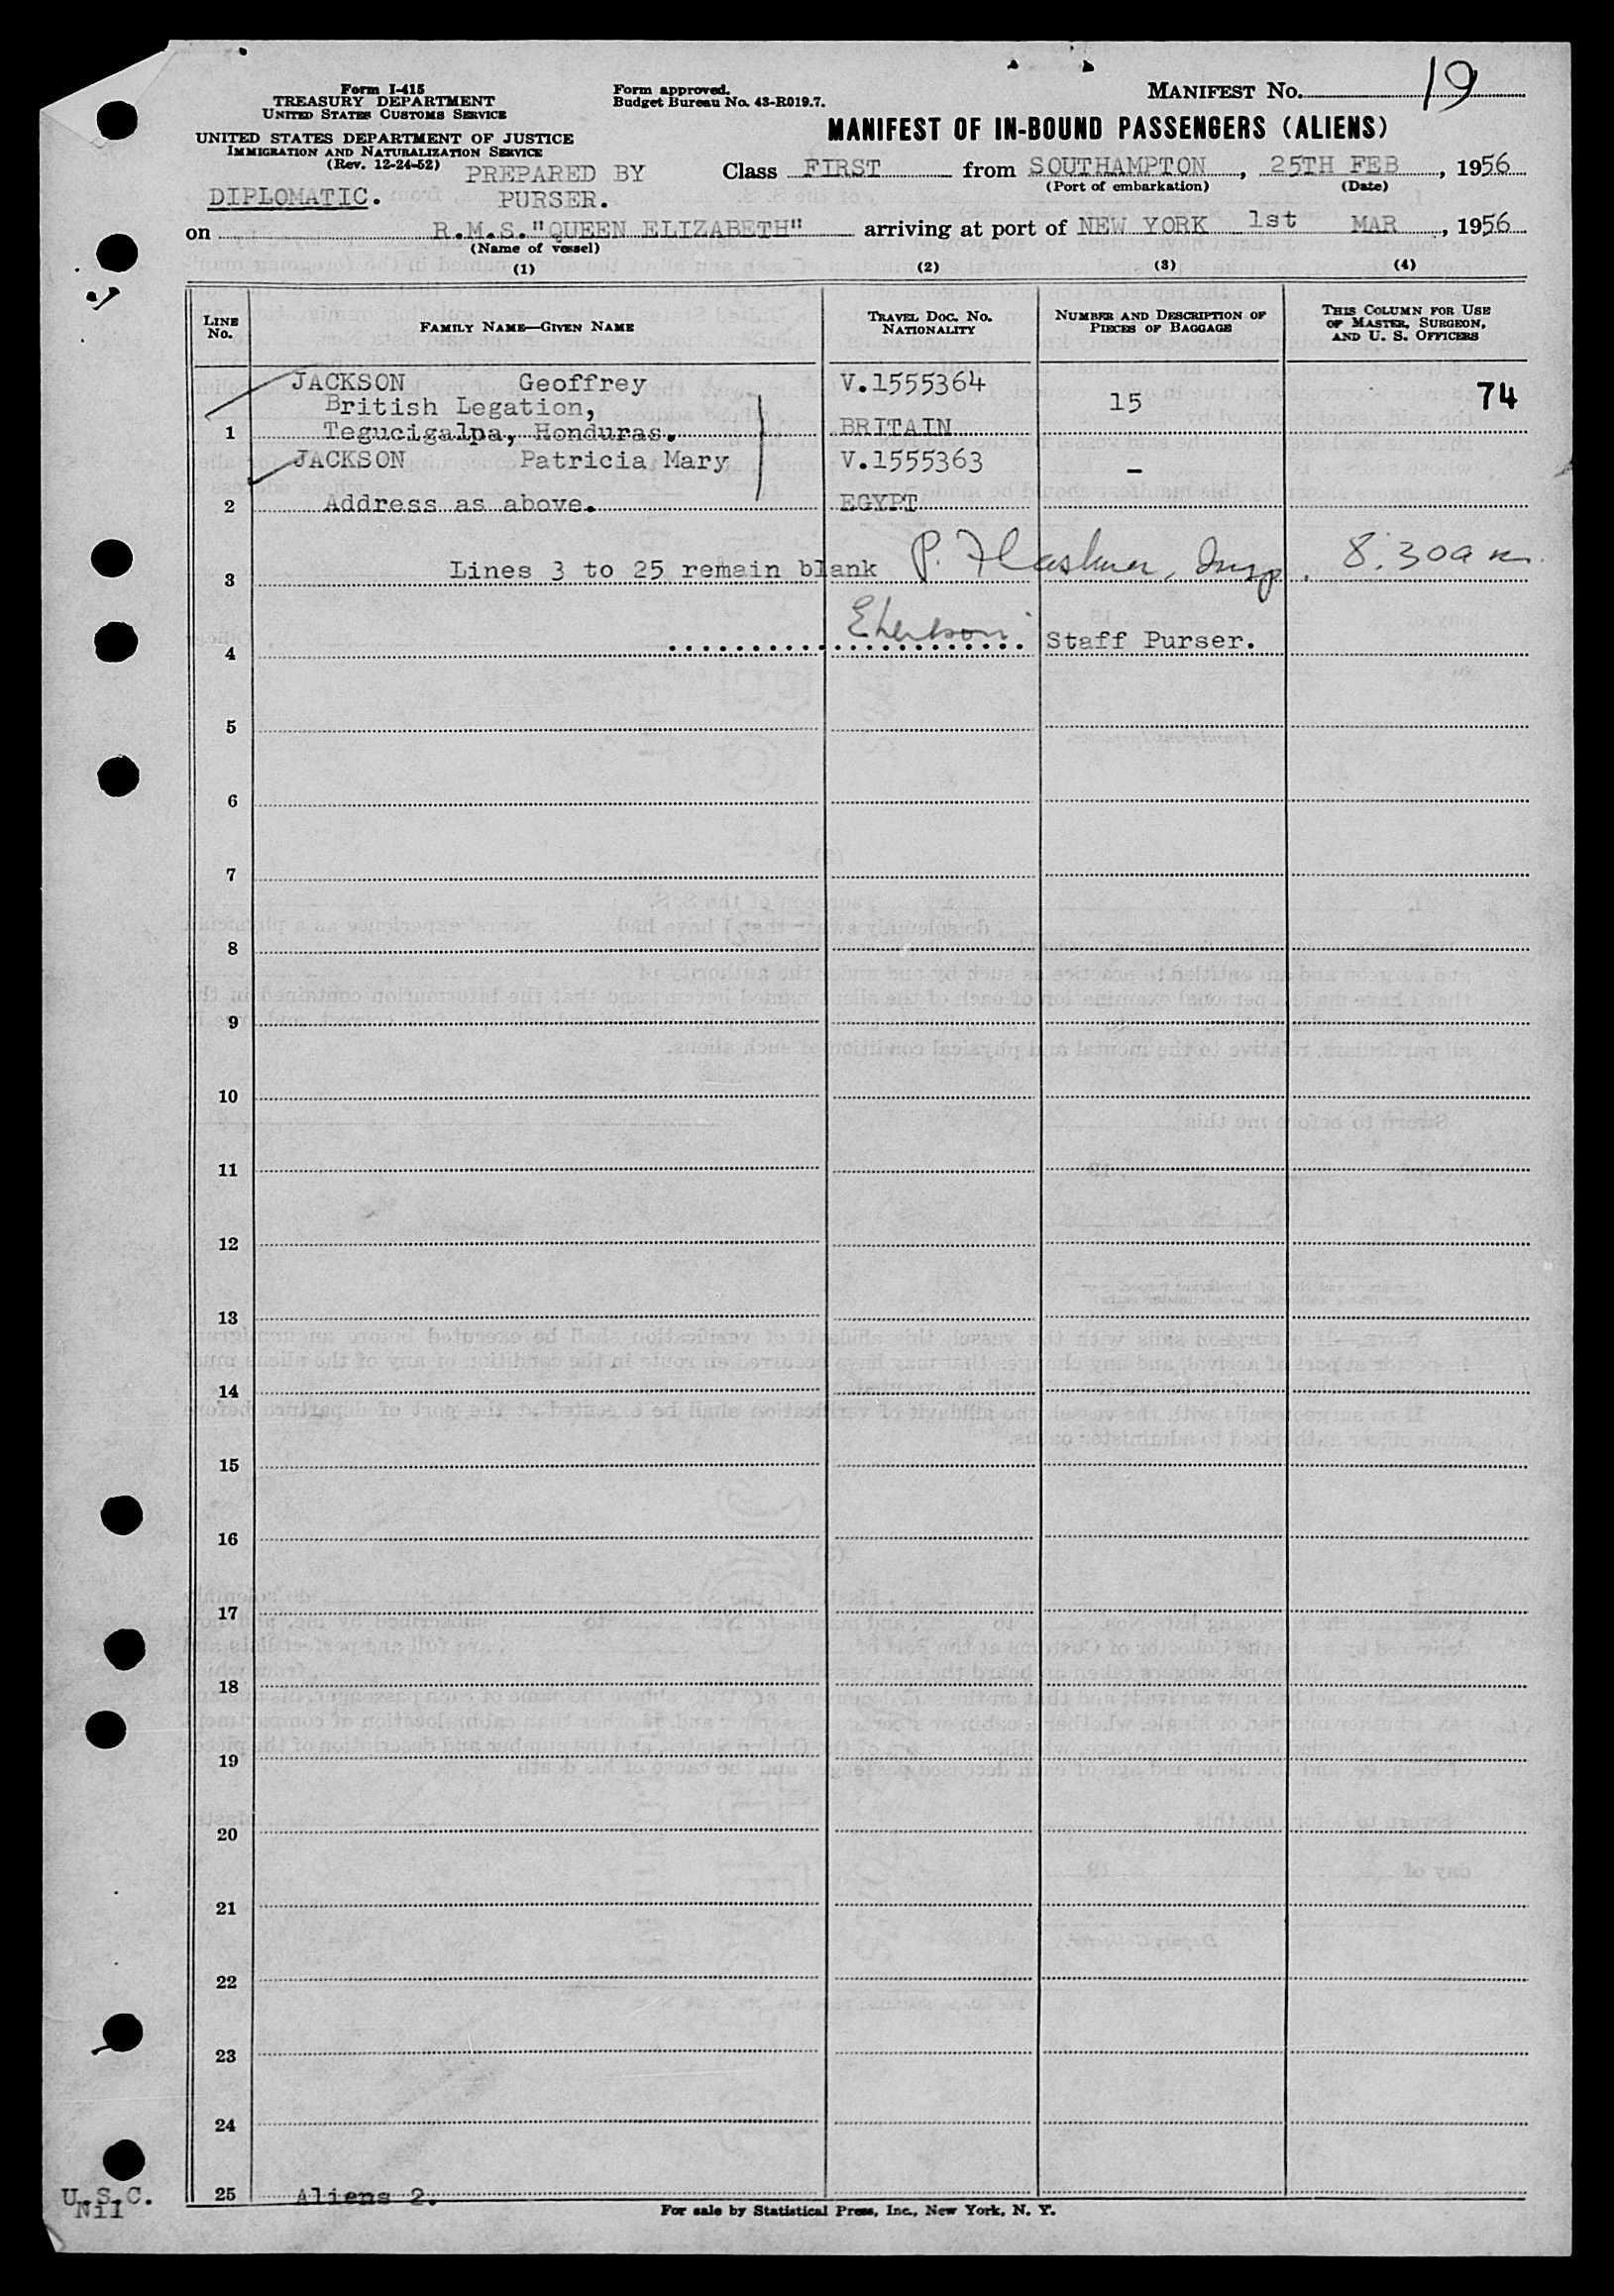 Form I-415
TREASURY DEPARTMENT
UNITED STATES CUSTOMS SERVICE
UNITED STATES DEPARTMENT OF JUSTICE
IMMIGRATION AND NATURALIZATION SERVICE
(Rev. 12-24-52)
Form approved.
Budget Bureau No. 43-R019.7.
MANIFEST NO. 19
MANIFEST OF IN-BOUND PASSENGERS (ALIENS)
PREPARED BY
PURSER.
DIPLOMATIC.
Class FIRST from SOUTHAMPTON, 25TH FEB, 1956
(Port of embarkation) (Date)
on R.M.S."QUEEN ELIZABETH" arriving at port of NEW YORK 1st MAR, 1956
(Name of vessel)
(1) (2) (3) (4)
LINE NO.
FAMILY NAME—GIVEN NAME
TRAVEL DOC. NO. NATIONALITY
NUMBER AND DESCRIPTION OF PIECES OF BAGGAGE
THIS COLUMN FOR USE OF MASTER, SURGEON, AND U. S. OFFICERS
JACKSON Geoffrey V.1555364 15 74
British Legation,
1 Tegucigalpa, Honduras. BRITAIN
JACKSON Patricia Mary V.1555363 -
2 Address as above. EGYPT
3 Lines 3 to 25 remain blank P. Insp. 8:30am
4 Staff Purser.
5
6
7
8
9
10
11
12
13
14
15
16
17
18
19
20
21
22
23
24
25 Aliens 2.
U.S.C.
Nil
For sale by Statistical Press, Inc., New York, N. Y.